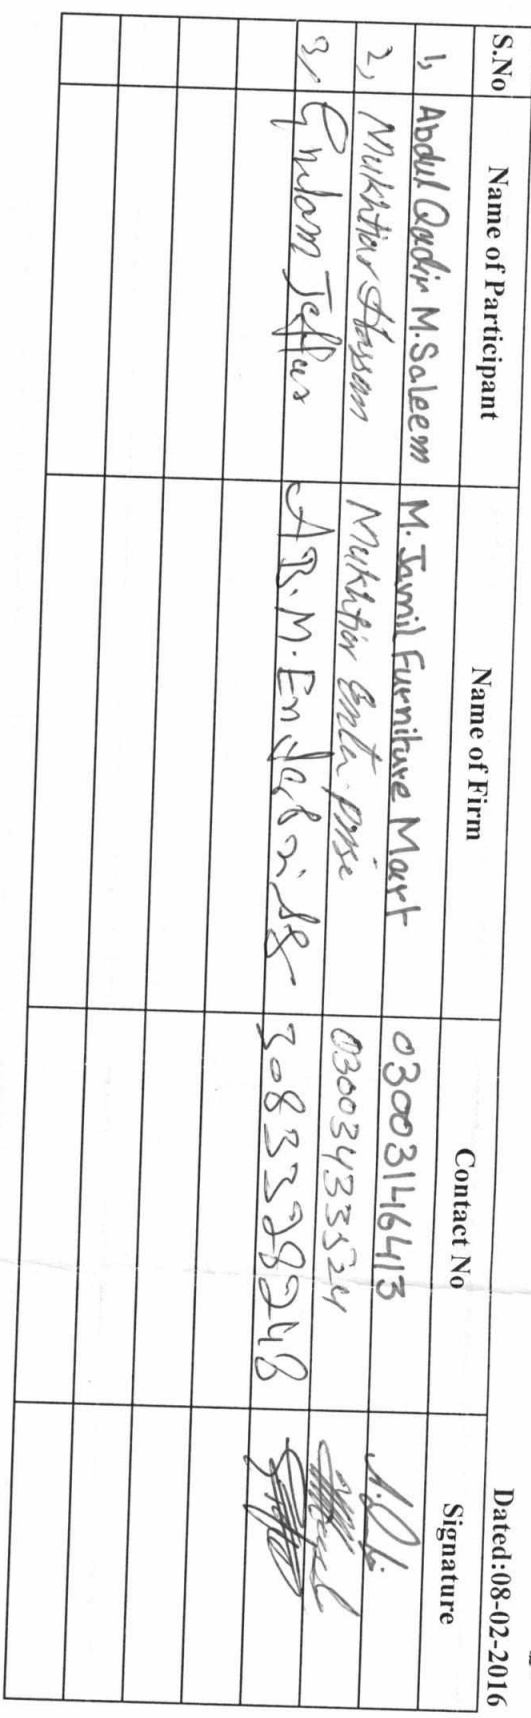 Dated:08-02-2016
S.No Name of Participant Name of Firm Contact No Signature
1, Abdul Qadir M.Saleem M. Jamil Furniture Mart 03003146413
2, Mukhtiar Hassan Mukhtiar Enter prise 03003433524
3, Gulam Jaffar A.B.M. 3083328248